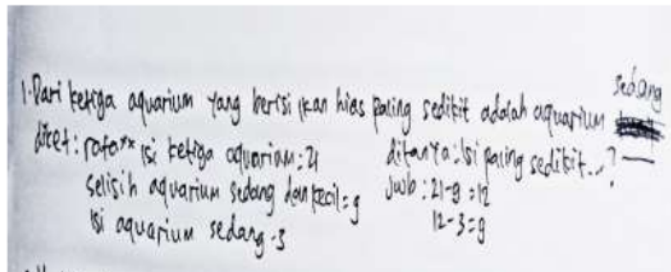 1. Dari ketiga aquarium yang berisi ikan hias paling sedikit adalah aquarium sedang
diket: rata** isi ketiga aquarium: 21
selisih aquarium sedang dan kecil = 9
isi aquarium sedang - 3
ditanya: Isi paling sedikit..?
Jwb: 21-9 = 12
12-3=9